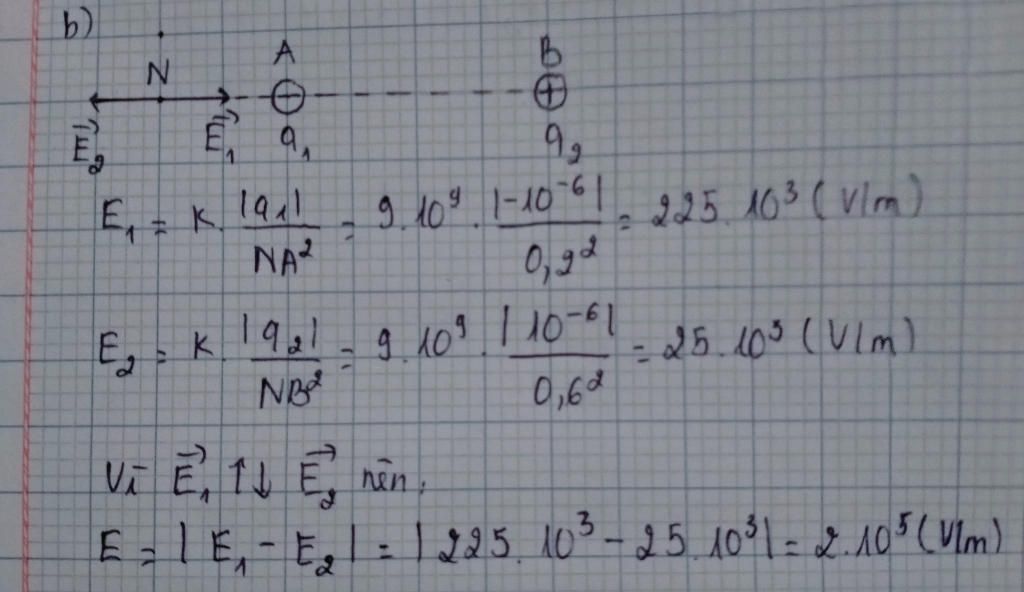 b)
N A B
E⃗₂ E⃗₁ q₁ q₂
E₁ = K. |q₁| / NA² = 9.10⁹ . |-10⁻⁶| / 0,2² = 225.10³ (V/m)
E₂ = K. |q₂| / NB² = 9.10⁹ . |10⁻⁶| / 0,6² = 25.10³ (V/m)
Vì E⃗₁ ↑↓ E⃗₂ nên:
E = |E₁ - E₂| = |225.10³ - 25.10³| = 2.10⁵ (V/m)